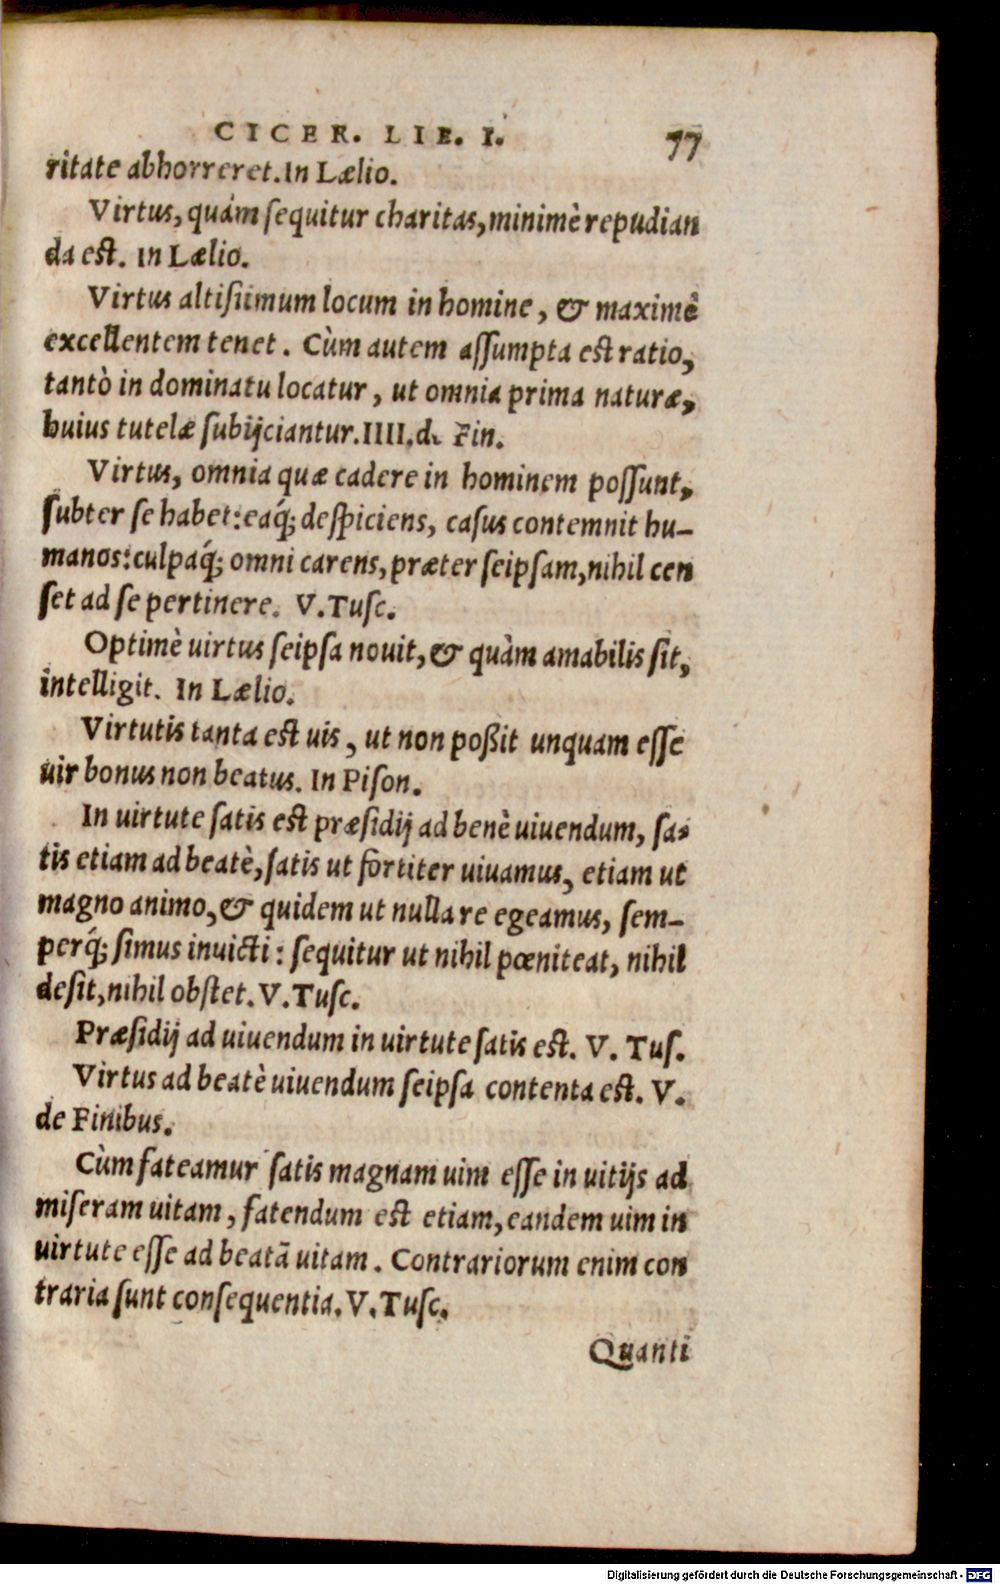 CICER. LIB. I. 77
ritate abhorreret. In Lælio.
Virtus, quám sequitur charitas, minimè repudian
da est. In Lælio.
Virtus altißimum locum in homine, & maximè
excellentem tenet. Cùm autem aſſumpta est ratio,
tantò in dominatu locatur, ut omnia prima naturæ,
huius tutelæ ſubijciantur. IIII. de Fin.
Virtus, omnia quæ cadere in hominem poſſunt,
ſubter ſe habet: eaq́; deſpiciens, caſus contemnit hu-
manos: culpaq́; omni carens, præter ſeipſam, nihil cen
ſet ad ſe pertinere. V. Tuſc.
Optimè uirtus ſeipſa nouit, & quàm amabilis ſit,
intelligit. In Lælio.
Virtutis tanta est uis, ut non poßit unquam eſſe
uir bonus non beatus. In Piſon.
In uirtute ſatis est præſidij ad benè uiuendum, ſa-
tis etiam ad beatè, ſatis ut fortiter uiuamus, etiam ut
magno animo, & quidem ut nulla re egeamus, ſem-
perq́; ſimus inuicti: ſequitur ut nihil pœniteat, nihil
deſit, nihil obſtet. V. Tuſc.
Præſidij ad uiuendum in uirtute ſatis est. V. Tuſ.
Virtus ad beatè uiuendum ſeipſa contenta est. V.
de Finibus.
Cùm fateamur ſatis magnam uim eſſe in uitijs ad
miſeram uitam, fatendum est etiam, eandem uim in
uirtute eſſe ad beatā uitam. Contrariorum enim con
traria ſunt conſequentia. V. Tuſc.
Quanti
Digitalisierung gefördert durch die Deutsche Forschungsgemeinschaft - DFG